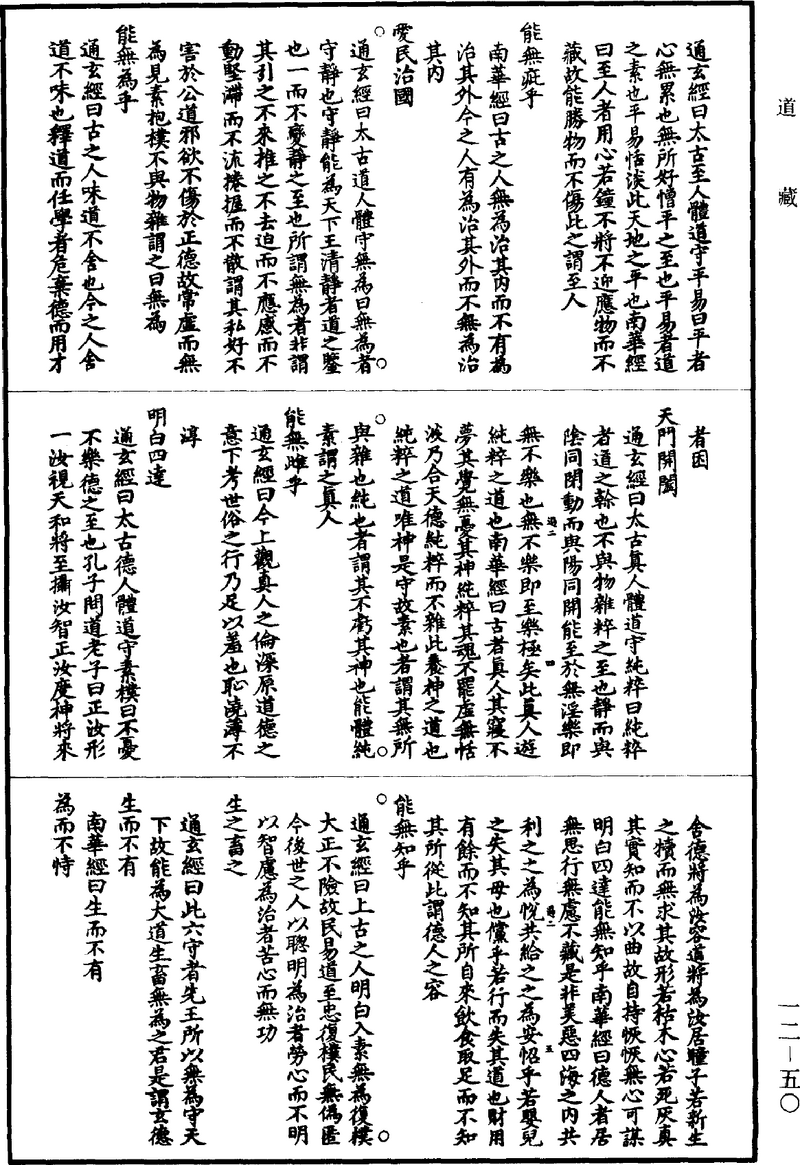 道藏
通玄經曰太古至人體道守平易曰平者
心無累也無所好憎平之至也平易者道
之素也平易恬淡此天地之平也南華經
曰至人者用心若鏡不將不迎應物而不
藏故能勝物而不傷此之謂至人
能無疵乎
南華經曰古之人無為治其內而不有為
治其外今之人有為治其外而不無為治
其內
愛民治國
通玄經曰太古道人體守無為曰無為者
守靜也守靜能為天下王清靜者道之鑒
也一而不變靜之至也所謂無為者非謂
其引之不來推之不去迫而不應感而不
動堅滯而不流捲握而不散謂其私好不
害於公道邪欲不傷於正德故常虛而無
為見素抱樸不與物雜謂之曰無為
能無為乎
通玄經曰古之人味道不舍也今之人舍
道不味也釋道而任學者危棄德而用才
者困
天門開闔
通玄經曰太古真人體道守純粹曰純粹
者道之幹也不與物雜粹之至也靜而與
陰同閉動而與陽同開能至於無淫樂即
無不樂也無不樂即至樂極矣此真人遊
純粹之道也南華經曰古者真人其寢不
夢其覺無憂其神純粹其魂不罷虛無恬
淡乃合天德純粹而不雜此養神之道也
純粹之道唯神是守故素也者謂其無所
與雜也純也者謂其不虧其神也能體純
素謂之真人
能無雌乎
通玄經曰今上觀真人之倫深原道德之
意下考世俗之行乃足以羞也恥澆薄不
淳
明白四達
通玄經曰太古德人體道守素樸曰不憂
不樂德之至也孔子問道老子曰正汝形
一汝視天和將至攝汝智正汝度神將來
舍德將為汝容道將為汝居瞳子若新生
之犢而無求其故形若枯木心若死灰真
其實知而不以曲故自持恢恢無心可謀
明白四達能無知乎南華經曰德人者居
無思行無慮不藏是非美惡四海之內共
利之之為悅共給之之為安怊乎若嬰兒
之失其母也儻乎若行而失其道也財用
有餘而不知其所自來飲食取足而不知
其所從此謂德人之容
能無知乎
通玄經曰上古之人明白入素無為復樸
大正不險故民易道至忠復樸民無偽匿
今後世之人以聰明為治者勞心而不明
以智慮為治者苦心而無功
生之畜之
通玄經曰此六守者先王所以無為守天
下故能為大道生畜無為之君是謂玄德
生而不有
南華經曰生而不有
為而不恃
一二－五〇